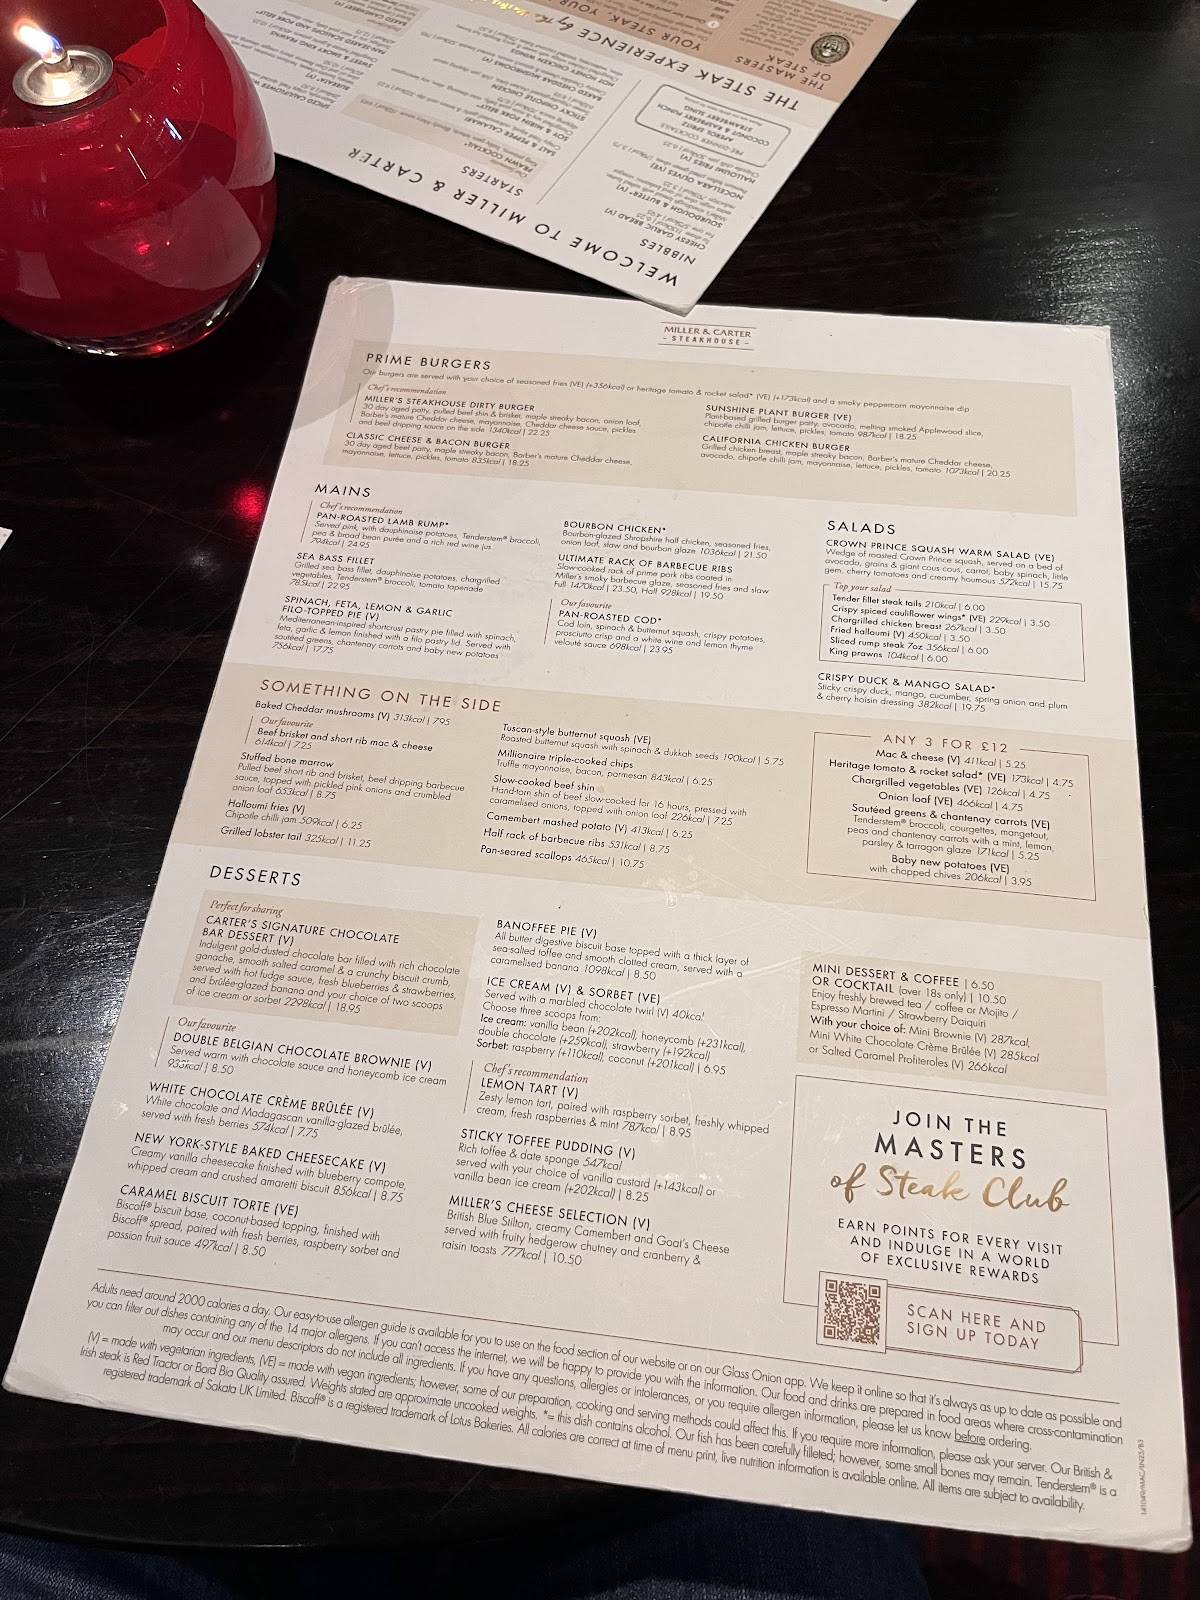 MILLER & CARTER
- STEAKHOUSE -
PRIME BURGERS
Our burgers are served with your choice of seasoned fries (VE) (+356kcal) or heritage tomato & rocket salad* (VE) (+173kcal) and a smoky peppercorn mayonnaise dip
Chef's recommendation
MILLER'S STEAKHOUSE DIRTY BURGER
30 day aged patty, pulled beef shin & brisket, maple streaky bacon, onion loaf,
Barber's mature Cheddar cheese, mayonnaise, Cheddar cheese sauce, pickles
and beef dripping sauce on the side 1340kcal | 22.25
CLASSIC CHEESE & BACON BURGER
30 day aged beef patty, maple streaky bacon, Barber's mature Cheddar cheese,
mayonnaise, lettuce, pickles, tomato 835kcal | 18.25
SUNSHINE PLANT BURGER (VE)
Plant-based grilled burger patty, avocado, melting smoked Applewood slice,
chipotle chilli jam, lettuce, pickles, tomato 987kcal | 18.25
CALIFORNIA CHICKEN BURGER
Grilled chicken breast, maple streaky bacon, Barber's mature Cheddar cheese,
avocado, chipotle chilli jam, mayonnaise, lettuce, pickles, tomato 1073kcal | 20.25
MAINS
Chef's recommendation
PAN-ROASTED LAMB RUMP*
Served pink, with dauphinoise potatoes, Tenderstem® broccoli,
pea & broad bean purée and a rich red wine jus
794kcal | 24.95
SEA BASS FILLET
Grilled sea bass fillet, dauphinoise potatoes, chargrilled
vegetables, Tenderstem® broccoli, tomato tapenade
785kcal | 22.95
SPINACH, FETA, LEMON & GARLIC
FILO-TOPPED PIE (V)
Mediterranean-inspired shortcrust pastry pie filled with spinach,
feta, garlic & lemon finished with a filo pastry lid. Served with
sautéed greens, chantenay carrots and baby new potatoes
756kcal | 17.75
BOURBON CHICKEN*
Bourbon-glazed Shropshire half chicken, seasoned fries,
onion loaf, slaw and bourbon glaze 1036kcal | 21.50
ULTIMATE RACK OF BARBECUE RIBS
Slow-cooked rack of prime pork ribs coated in
Miller's smoky barbecue glaze, seasoned fries and slaw
Full 1470kcal | 23.50, Half 928kcal | 19.50
Our favourite
PAN-ROASTED COD*
Cod loin, spinach & butternut squash, crispy potatoes,
prosciutto crisp and a white wine and lemon thyme
velouté sauce 698kcal | 23.95
SALADS
CROWN PRINCE SQUASH WARM SALAD (VE)
Wedge of roasted Crown Prince squash, served on a bed of
avocado, grains & giant cous cous, carrot, baby spinach, little
gem, cherry tomatoes and creamy houmous 572kcal | 15.75
Top your salad
Tender fillet steak tails 210kcal | 6.00
Crispy spiced cauliflower wings* (VE) 229kcal | 3.50
Chargrilled chicken breast 267kcal | 3.50
Fried halloumi (V) 450kcal | 3.50
Sliced rump steak 7oz 356kcal | 6.00
King prawns 104kcal | 6.00
CRISPY DUCK & MANGO SALAD*
Sticky crispy duck, mango, cucumber, spring onion and plum
& cherry hoisin dressing 382kcal | 19.75
SOMETHING ON THE SIDE
Baked Cheddar mushrooms (V) 313kcal | 7.95
Our favourite
Beef brisket and short rib mac & cheese
614kcal | 7.25
Stuffed bone marrow
Pulled beef short rib and brisket, beef dripping barbecue
sauce, topped with pickled pink onions and crumbled
onion loaf 653kcal | 8.75
Halloumi fries (V)
Chipotle chilli jam 509kcal | 6.25
Grilled lobster tail 325kcal | 11.25
Tuscan-style butternut squash (VE)
Roasted butternut squash with spinach & dukkah seeds 190kcal | 5.75
Millionaire triple-cooked chips
Truffle mayonnaise, bacon, parmesan 843kcal | 6.25
Slow-cooked beef shin
Hand-torn shin of beef slow-cooked for 16 hours, pressed with
caramelised onions, topped with onion loaf 226kcal | 7.25
Camembert mashed potato (V) 413kcal | 6.25
Half rack of barbecue ribs 531kcal | 8.75
Pan-seared scallops 465kcal | 10.75
ANY 3 FOR £12
Mac & cheese (V) 411kcal | 5.25
Heritage tomato & rocket salad* (VE) 173kcal | 4.75
Chargrilled vegetables (VE) 126kcal | 4.75
Onion loaf (VE) 466kcal | 4.75
Sautéed greens & chantenay carrots (VE)
Tenderstem® broccoli, courgettes, mangetout,
peas and chantenay carrots with a mint, lemon,
parsley & tarragon glaze 171kcal | 5.25
Baby new potatoes (VE)
with chopped chives 206kcal | 3.95
DESSERTS
Perfect for sharing
CARTER'S SIGNATURE CHOCOLATE
BAR DESSERT (V)
Indulgent gold-dusted chocolate bar filled with rich chocolate
ganache, smooth salted caramel & a crunchy biscuit crumb,
served with hot fudge sauce, fresh blueberries & strawberries,
and brûlée-glazed banana and your choice of two scoops
of ice cream or sorbet 2298kcal | 18.95
Our favourite
DOUBLE BELGIAN CHOCOLATE BROWNIE (V)
Served warm with chocolate sauce and honeycomb ice cream
933kcal | 8.50
WHITE CHOCOLATE CRÈME BRÛLÉE (V)
White chocolate and Madagascan vanilla-glazed brûlée,
served with fresh berries 574kcal | 7.75
NEW YORK-STYLE BAKED CHEESECAKE (V)
Creamy vanilla cheesecake finished with blueberry compote,
whipped cream and crushed amaretti biscuit 856kcal | 8.75
CARAMEL BISCUIT TORTE (VE)
Biscoff® biscuit base, coconut-based topping, finished with
Biscoff® spread, paired with fresh berries, raspberry sorbet and
passion fruit sauce 497kcal | 8.50
BANOFFEE PIE (V)
All butter digestive biscuit base topped with a thick layer of
sea-salted toffee and smooth clotted cream, served with a
caramelised banana 1098kcal | 8.50
ICE CREAM (V) & SORBET (VE)
Served with a marbled chocolate twirl (V) 40kcal
Choose three scoops from:
Ice cream: vanilla bean (+202kcal), honeycomb (+231kcal),
double chocolate (+259kcal), strawberry (+192kcal)
Sorbet: raspberry (+110kcal), coconut (+201kcal) | 6.95
Chef's recommendation
LEMON TART (V)
Zesty lemon tart, paired with raspberry sorbet, freshly whipped
cream, fresh raspberries & mint 787kcal | 8.95
STICKY TOFFEE PUDDING (V)
Rich toffee & date sponge 547kcal
served with your choice of vanilla custard (+143kcal) or
vanilla bean ice cream (+202kcal) | 8.25
MILLER'S CHEESE SELECTION (V)
British Blue Stilton, creamy Camembert and Goat's Cheese
served with fruity hedgerow chutney and cranberry &
raisin toasts 777kcal | 10.50
MINI DESSERT & COFFEE | 6.50
OR COCKTAIL (over 18s only) | 10.50
Enjoy freshly brewed tea / coffee or Mojito /
Espresso Martini / Strawberry Daiquiri
With your choice of: Mini Brownie (V) 287kcal,
Mini White Chocolate Crème Brûlée (V) 285kcal
or Salted Caramel Profiteroles (V) 266kcal
JOIN THE
MASTERS
of Steak Club
EARN POINTS FOR EVERY VISIT
AND INDULGE IN A WORLD
OF EXCLUSIVE REWARDS
SCAN HERE AND
SIGN UP TODAY
Adults need around 2000 calories a day. Our easy-to-use allergen guide is available for you to use on the food section of our website or on our Glass Onion app. We keep it online so that it's always as up to date as possible and
you can filter out dishes containing any of the 14 major allergens. If you can't access the internet, we will be happy to provide you with the information. Our food and drinks are prepared in food areas where cross-contamination
may occur and our menu descriptors do not include all ingredients. If you have any questions, allergies or intolerances, or you require allergen information, please let us know before ordering.
(V) = made with vegetarian ingredients, (VE) = made with vegan ingredients; however, some of our preparation, cooking and serving methods could affect this. If you require more information, please ask your server. Our British &
Irish steak is Red Tractor or Bord Bia Quality assured. Weights stated are approximate uncooked weights. *= this dish contains alcohol. Our fish has been carefully filleted; however, some small bones may remain. Tenderstem® is a
registered trademark of Sakata UK Limited. Biscoff® is a registered trademark of Lotus Bakeries. All calories are correct at time of menu print, live nutrition information is available online. All items are subject to availability.
WELCOME TO MILLER & CARTER
NIBBLES
CHEESY GARLIC BREAD (V)
SOURDOUGH & BUTTER* (V)
NOCELLARA OLIVES (VE)
HALLOUMI FRIES (V)
PRE-DINNER COCKTAILS
APEROL SPRITZ
COCONUT & RASPBERRY PUNCH
STRAWBERRY SLING
STARTERS
Our favourite
PRAWN COCKTAIL*
SALT & PEPPER CALAMARI
SOY & MIRIN PORK BELLY*
STICKY CHIPOTLE CHICKEN
BAKED CHEDDAR MUSHROOMS (V)
HOT HONEY CHICKEN WINGS
BURRATA* (V)
SWEET & SMOKY KING PRAWNS
PAN-SEARED SCALLOPS AND PORK BELLY*
BAKED CAMEMBERT (V)
THE STEAK EXPERIENCE by The
THE MASTERS
OF STEAK
YOUR STEAK, YOUR